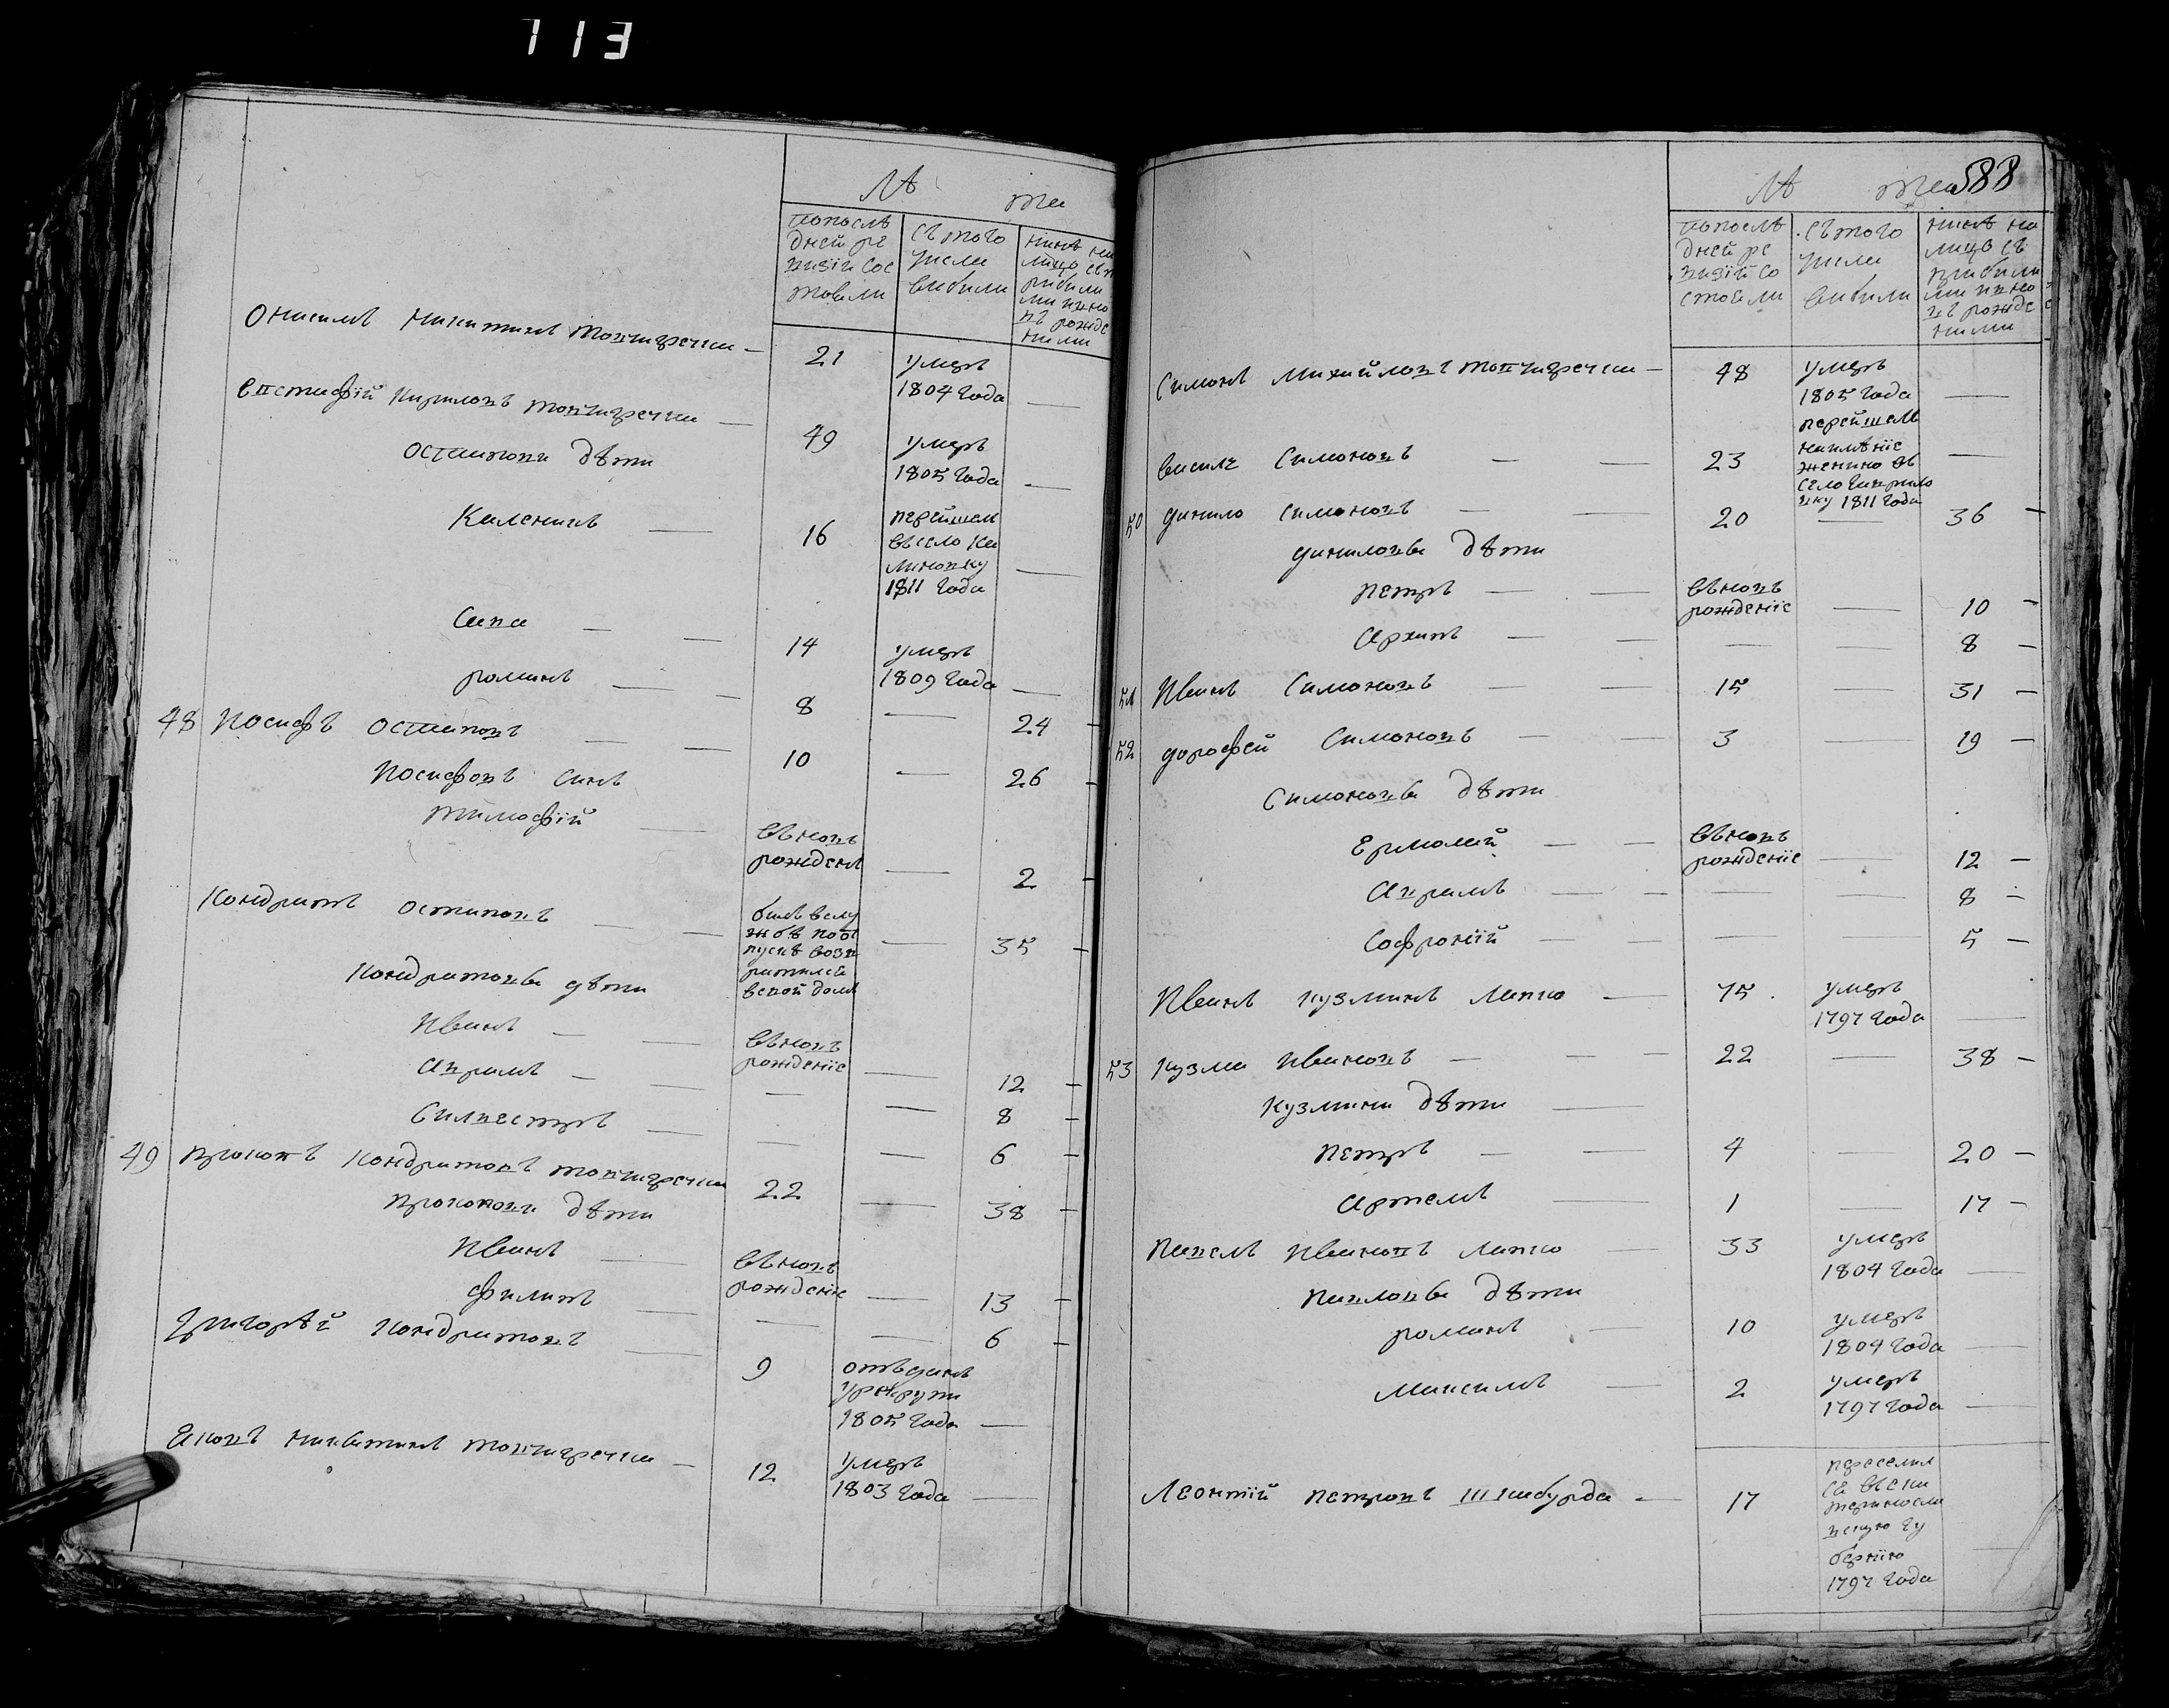 113
Лѣ та
попослѣ
дней ре
визіи сос
тояли
съ того
числа
выбыли
нинѣ на
лицо съ п
рибили
ми и вно
въ рожде
ними
Онисимъ Никитинъ Товчигречка — 21 умеръ
1804 года —
Евстафій Кириловъ Товчигречка — 49 умеръ
1805 года —
Остапови дѣти
Каленикъ — 16 перейшел
въ село Ка
линовку
1811 года —
Сава — — 14 умеръ
1809 года —
романъ — — 8 — 24 —
48 Иосифъ Остаповъ — — 10 — 26 —
Иосифовъ синъ
тимофій — въновъ
рожденъ — 2 —
Кондратъ Остаповъ — — билъ вслу
жбѣ по от
пускѣ возв
ратился
в свой домъ — 35 —
Кондратовы дѣти
Иванъ — — въновъ
рожденіе — 12 —
Аврамъ — — — — 8 —
Силвестръ — — — 6 —
49 прокопъ Кондратовъ товчигречка 22 — 38 —
прокопови дѣти
Иванъ — въновъ
рожденіе — 13 —
филипъ — — — 6 —
Григорѣй Кондратовъ — 9 отъданъ
у рекрути
1805 года —
Яковъ Никитинъ товчигречка — 12 умеръ
1803 года —
588
Лѣ та
попослѣ
дней ре
визіи со
стояли
съ того
числа
выбыли
нинѣ на
лицо съ
прибили
ми и вно
въ рожде
ними
Симонъ Михайловъ товчигречка — 48 умеръ
1805 года —
василь Симоновъ — — 23 перейшелъ
на имѣніе
женино въ
село Гаврило
вку 1811 года —
50 данило Симоновъ — — 20 — 36 —
даниловы дѣти
петръ — — въновъ
рожденіе — 10 —
Архипъ — — — — 8 —
51 Иванъ Симоновъ — — 15 — 31 —
52 дорофей Симоновъ — — 3 — 19 —
Симоновы дѣти
Ермолай — — въновъ
рожденіе — 12 —
Аврамъ — — — — 8 —
Софроній — — — — 5 —
Иванъ кузминъ Лапко — 75 умеръ
1797 года —
53 кузма Ивановъ — — — 22 — 38 —
кузмини дѣти —
петръ — — 4 — 20 —
Артемъ — 1 — 17 —
павелъ Ивановъ лапко 33 умеръ
1804 года —
павловы дѣти
романъ — 10 умеръ
1804 года —
Максимъ — 2 умеръ
1797 года —
Леонтій петровъ Шкабурда — 17 переселил
ся въ ека
теринославс
кую гу
бернію
1797 года —